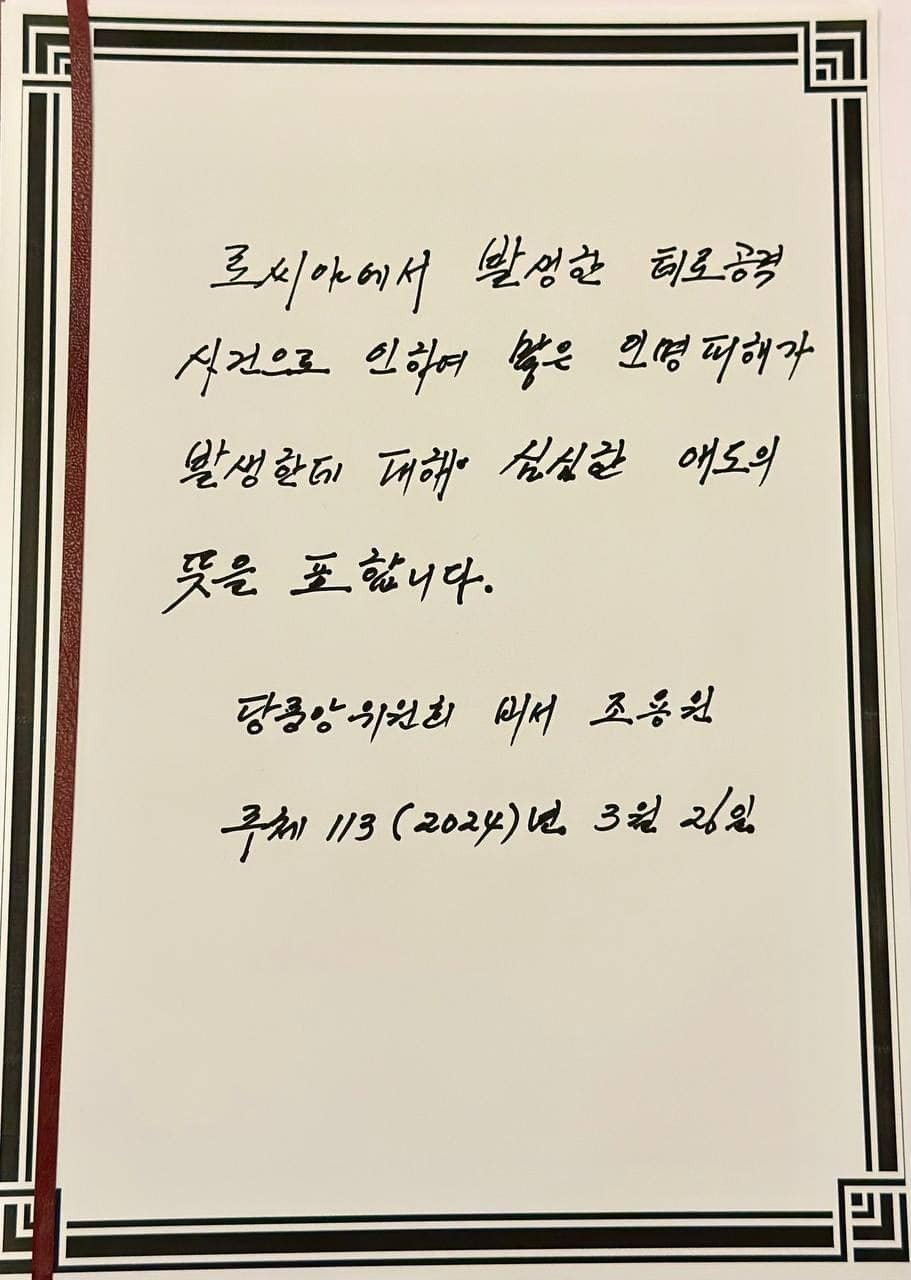 로씨야에서 발생한 테로공격
사건으로 인하여 많은 인명피해가
발생한데 대해 심심한 애도의
뜻을 표합니다.
당중앙위원회 비서 조용원
주체 113 (2024)년 3월 26일